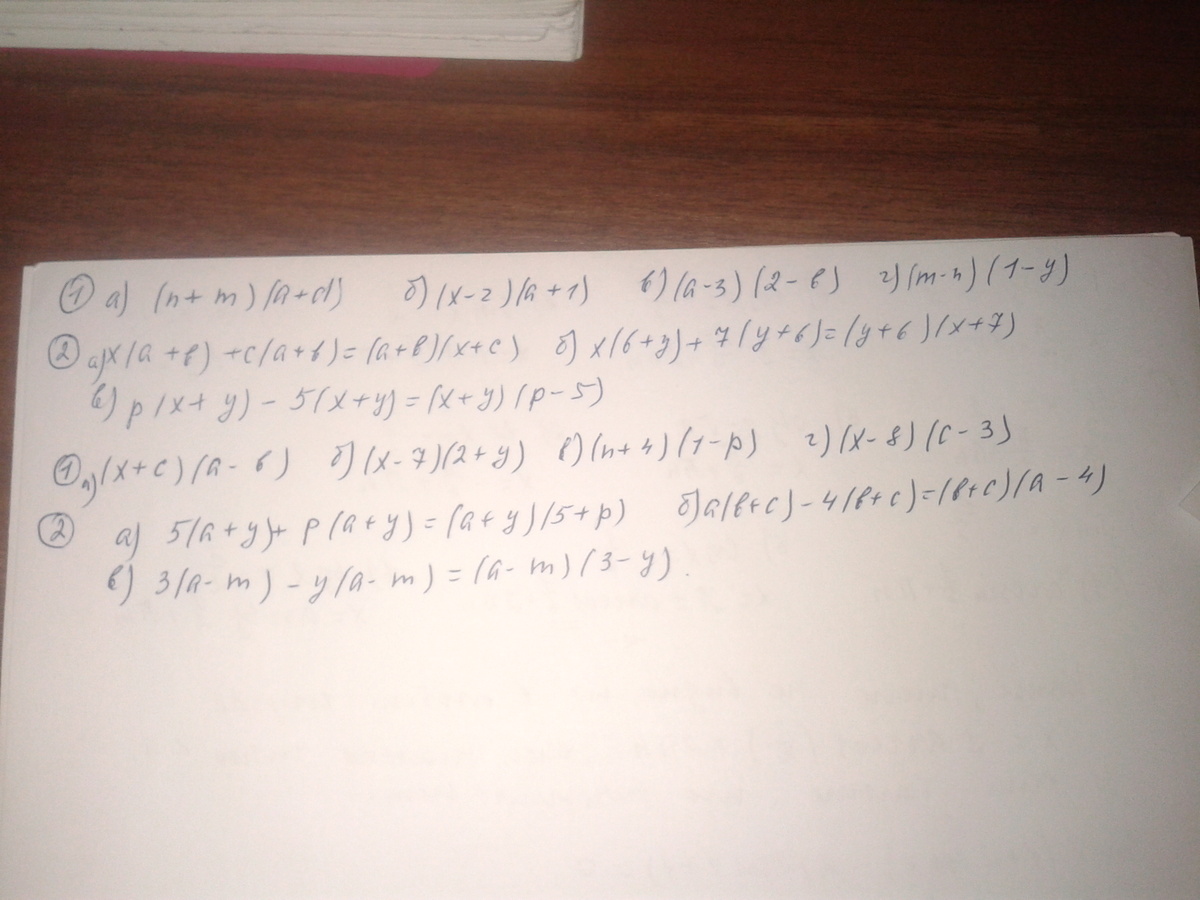 ① а) (n+m)(a+d) б) (x-2)(a+1) в) (a-3)(2-b) г) (m-n)(1-y)
② а) x(a+b)+c(a+b)=(a+b)(x+c) б) x(6+y)+7(y+6)=(y+6)(x+7)
в) p(x+y)-5(x+y)=(x+y)(p-5)
① а) (x+c)(a-b) б) (x-7)(2+y) в) (n+4)(1-p) г) (x-8)(c-3)
② а) 5(a+y)+p(a+y)=(a+y)(5+p) б) a(b+c)-4(b+c)=(b+c)(a-4)
в) 3(a-m)-y(a-m)=(a-m)(3-y).